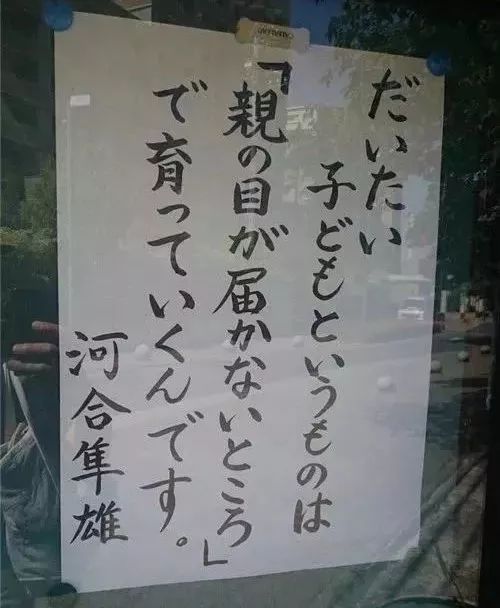 だいたい
子どもというものは
「親の目が届かないところ」
で育っていくんです。
河合隼雄